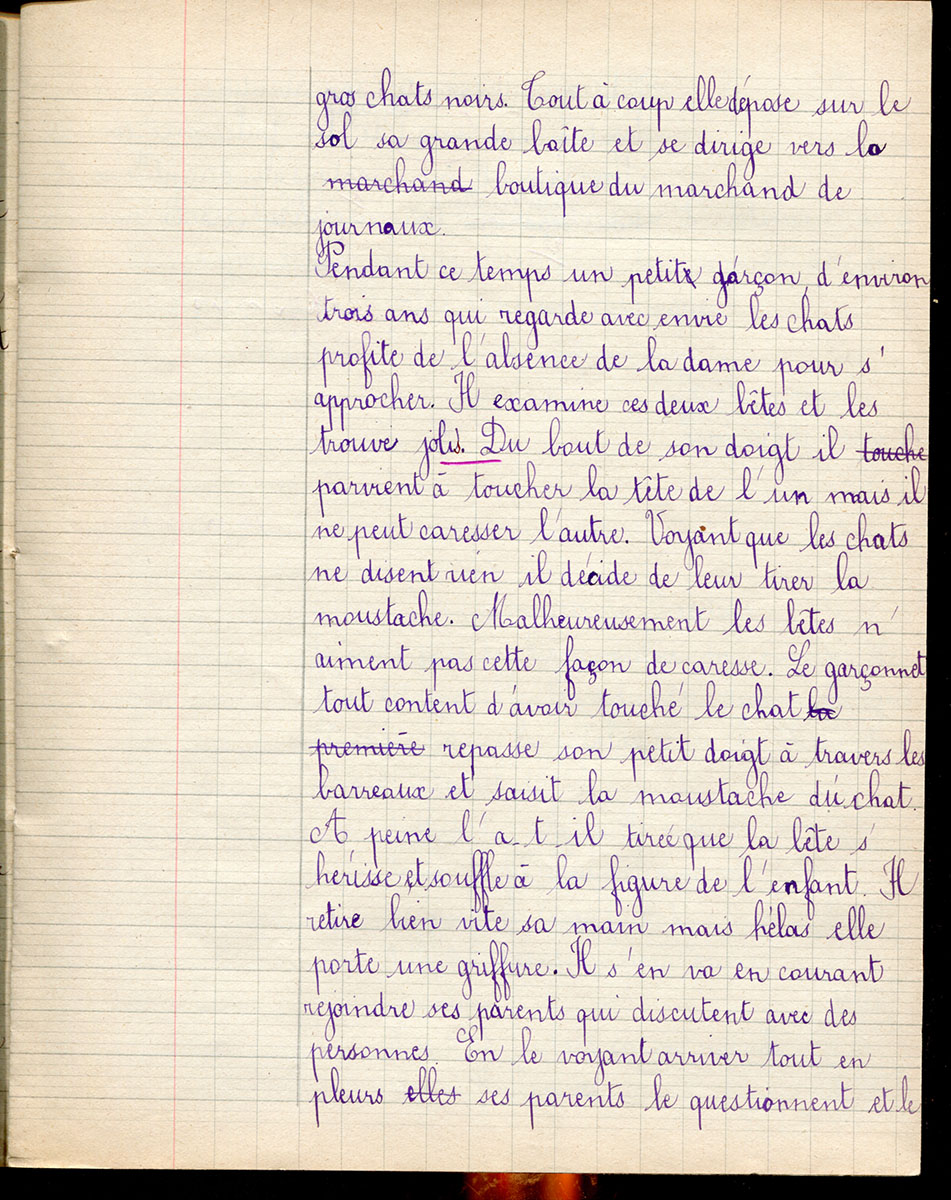 gros chats noirs. Tout à coup elle dépose sur le
sol sa grande boîte et se dirige vers la
~~marchand~~ boutique du marchand de
journaux.
Pendant ce temps un petit garçon, d'environ
trois ans qui regarde avec envie les chats
profite de l'absence de la dame pour s'
approcher. Il examine ces deux bêtes et les
trouve jolis. Du bout de son doigt il ~~touche~~
parvient à toucher la tête de l'un mais il
ne peut caresser l'autre. Voyant que les chats
ne disent rien il décide de leur tirer la
moustache. Malheureusement les bêtes n'
aiment pas cette façon de caresse. Le garçonnet
tout content d'avoir touché le chat ~~la~~
~~première~~ repasse son petit doigt à travers les
barreaux et saisit la moustache du chat.
A peine l'a-t-il tirée que la bête s'
hérisse et souffle à la figure de l'enfant. Il
retire bien vite sa main mais hélas elle
porte une griffure. Il s'en va en courant
rejoindre ses parents qui discutent avec des
personnes. En le voyant arriver tout en
pleurs ~~elles~~ ses parents le questionnent et le